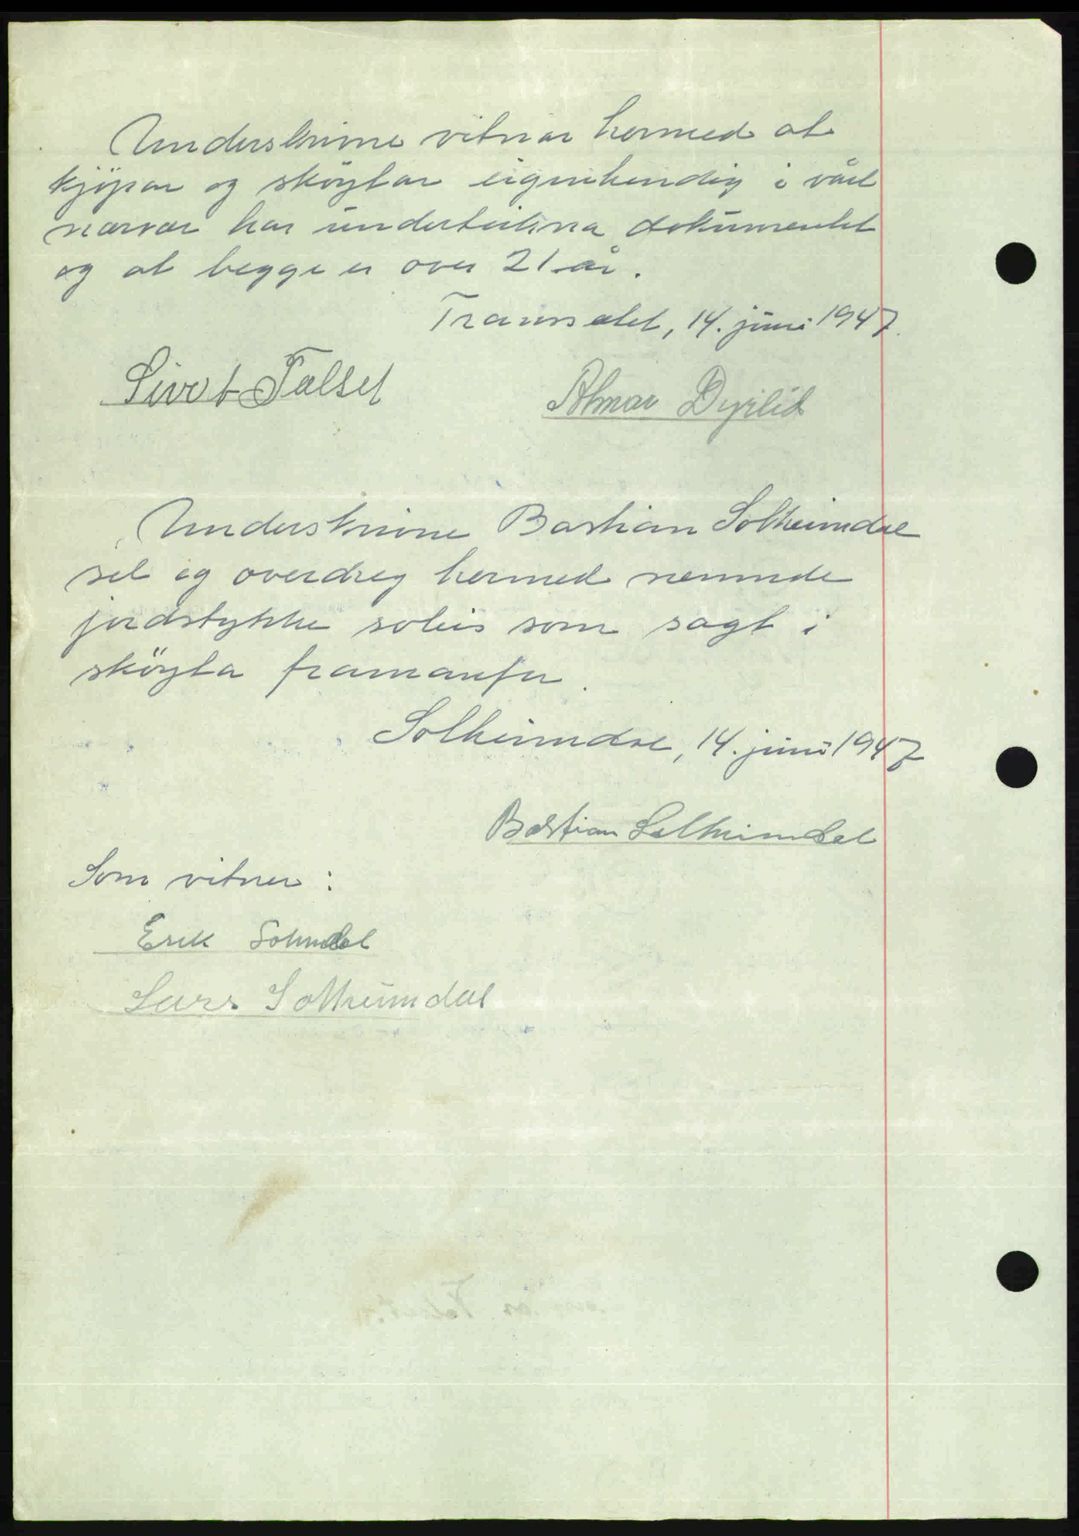 Underskrivne vitnar hermed at
kjöpar og sköytar eigenhendig i vårt
nærvær har underteikna dokumentet
og at begge er over 21 år.
14. juni 1947.
Sivert Falset
Almar Dyrlid
Underskrivne Bastian Solheimdal
sel og overdreg hermed nemnde
jordstykke soleis som sagt i
sköyta framanfor.
Solheimdal, 14. juni 1947
Bastian Solheimdal
Som vitner:
Erik
Lars Solheimdal